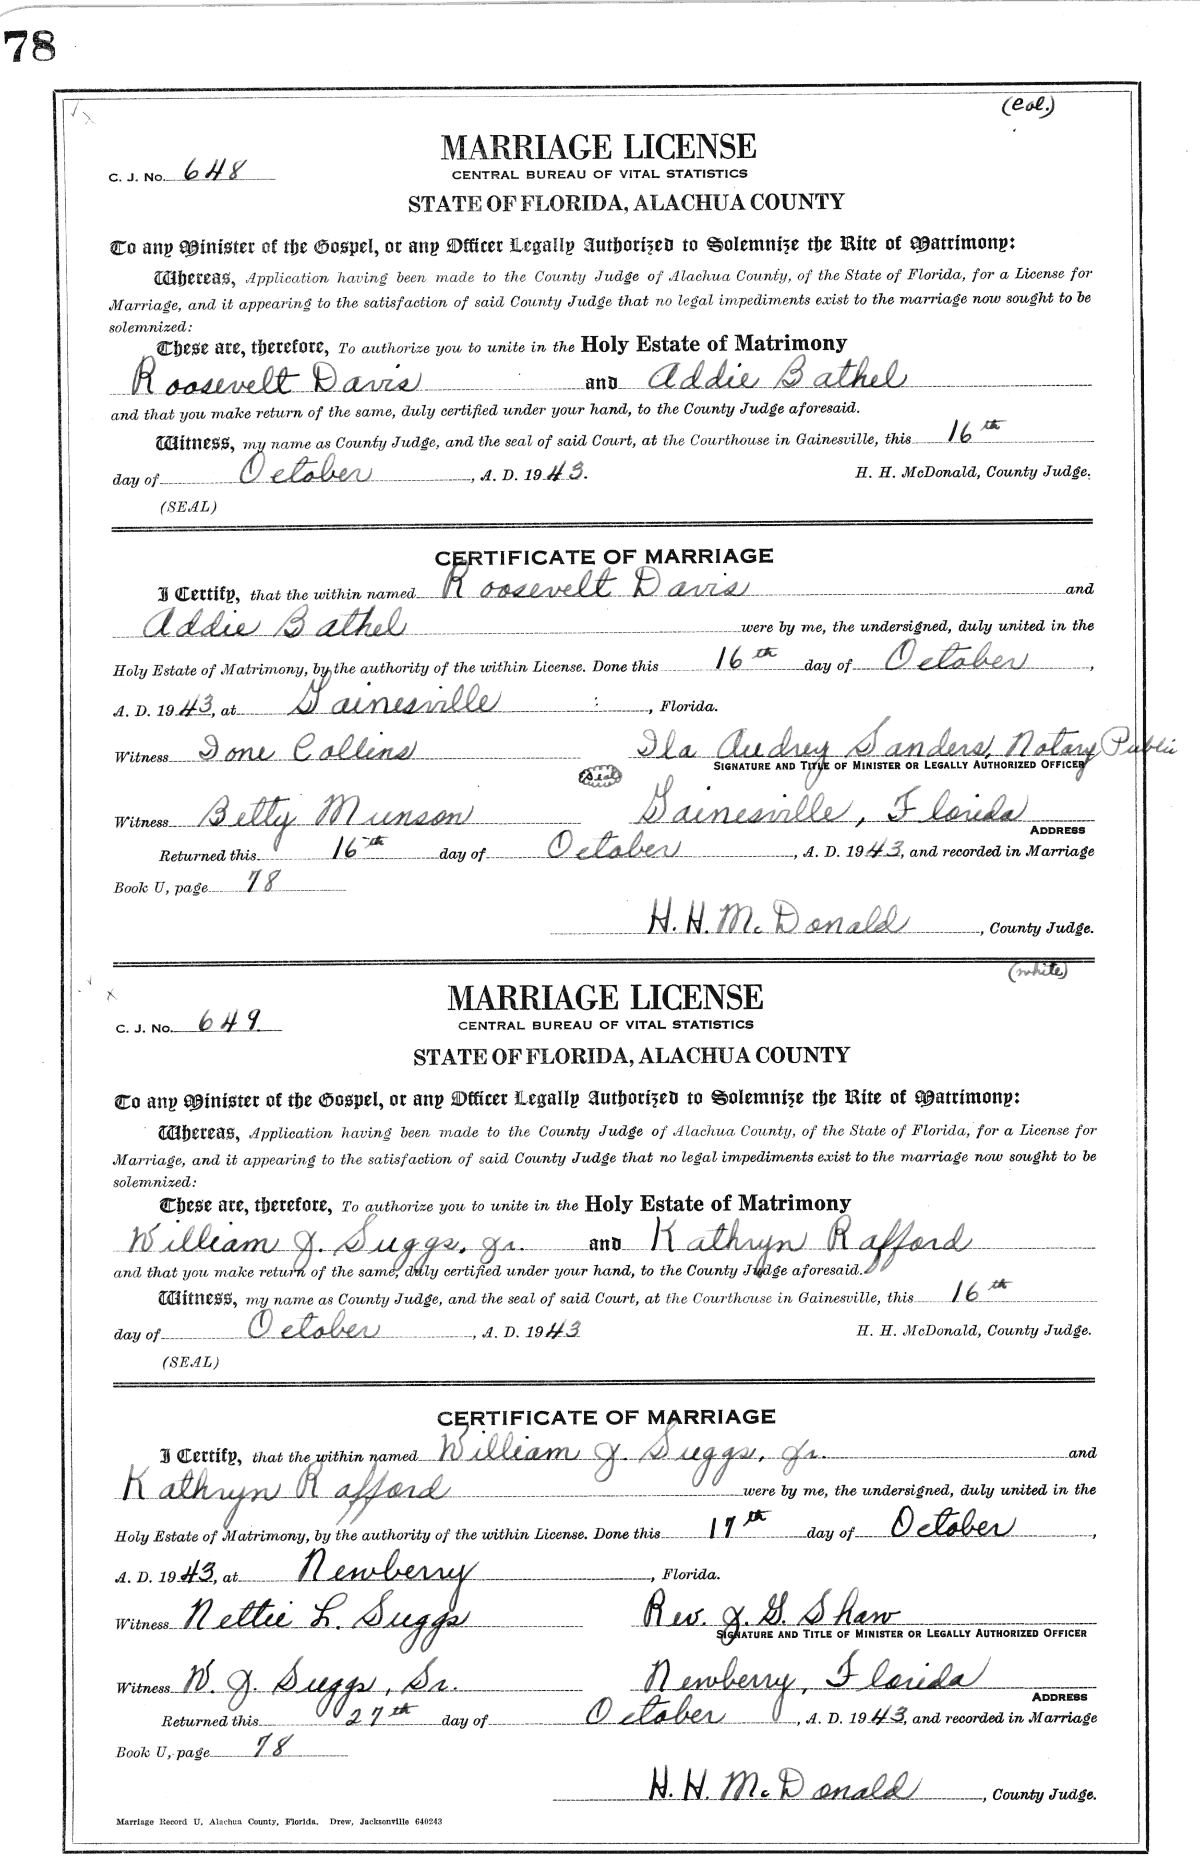 78
(Col.)
MARRIAGE LICENSE
C. J. No. 648
CENTRAL BUREAU OF VITAL STATISTICS
STATE OF FLORIDA, ALACHUA COUNTY
To any Minister of the Gospel, or any Officer Legally Authorized to Solemnize the Rite of Matrimony:
Whereas, Application having been made to the County Judge of Alachua County, of the State of Florida, for a License for
Marriage, and it appearing to the satisfaction of said County Judge that no legal impediments exist to the marriage now sought to be
solemnized:
These are, therefore, To authorize you to unite in the Holy Estate of Matrimony
Roosevelt Davis and Addie Bathel
and that you make return of the same, duly certified under your hand, to the County Judge aforesaid.
Witness, my name as County Judge, and the seal of said Court, at the Courthouse in Gainesville, this 16th
day of October, A. D. 1943. H. H. McDonald, County Judge.
(SEAL)
CERTIFICATE OF MARRIAGE
I Certify, that the within named Roosevelt Davis and
Addie Bathel were by me, the undersigned, duly united in the
Holy Estate of Matrimony, by the authority of the within License. Done this 16th day of October,
A. D. 1943, at Gainesville, Florida.
Witness Ione Collins Ila Audrey Sanders, Notary Public
SIGNATURE AND TITLE OF MINISTER OR LEGALLY AUTHORIZED OFFICER
(Seal)
Witness Betty Munson Gainesville, Florida
ADDRESS
Returned this 16th day of October, A. D. 1943, and recorded in Marriage
Book U, page 78
H. H. McDonald, County Judge.
(white)
MARRIAGE LICENSE
C. J. No. 649
CENTRAL BUREAU OF VITAL STATISTICS
STATE OF FLORIDA, ALACHUA COUNTY
To any Minister of the Gospel, or any Officer Legally Authorized to Solemnize the Rite of Matrimony:
Whereas, Application having been made to the County Judge of Alachua County, of the State of Florida, for a License for
Marriage, and it appearing to the satisfaction of said County Judge that no legal impediments exist to the marriage now sought to be
solemnized:
These are, therefore, To authorize you to unite in the Holy Estate of Matrimony
William J. Suggs, Jr. and Kathryn Rafford
and that you make return of the same, duly certified under your hand, to the County Judge aforesaid.
Witness, my name as County Judge, and the seal of said Court, at the Courthouse in Gainesville, this 16th
day of October, A. D. 1943 H. H. McDonald, County Judge.
(SEAL)
CERTIFICATE OF MARRIAGE
I Certify, that the within named William J. Suggs, Jr. and
Kathryn Rafford were by me, the undersigned, duly united in the
Holy Estate of Matrimony, by the authority of the within License. Done this 17th day of October,
A. D. 1943, at Newberry, Florida.
Witness Nettie L. Suggs Rev. J. G. Shaw
SIGNATURE AND TITLE OF MINISTER OR LEGALLY AUTHORIZED OFFICER
Witness W. J. Suggs, Sr. Newberry, Florida
ADDRESS
Returned this 27th day of October, A. D. 1943, and recorded in Marriage
Book U, page 78
H. H. McDonald, County Judge.
Marriage Record U, Alachua County, Florida. Drew, Jacksonville 640243